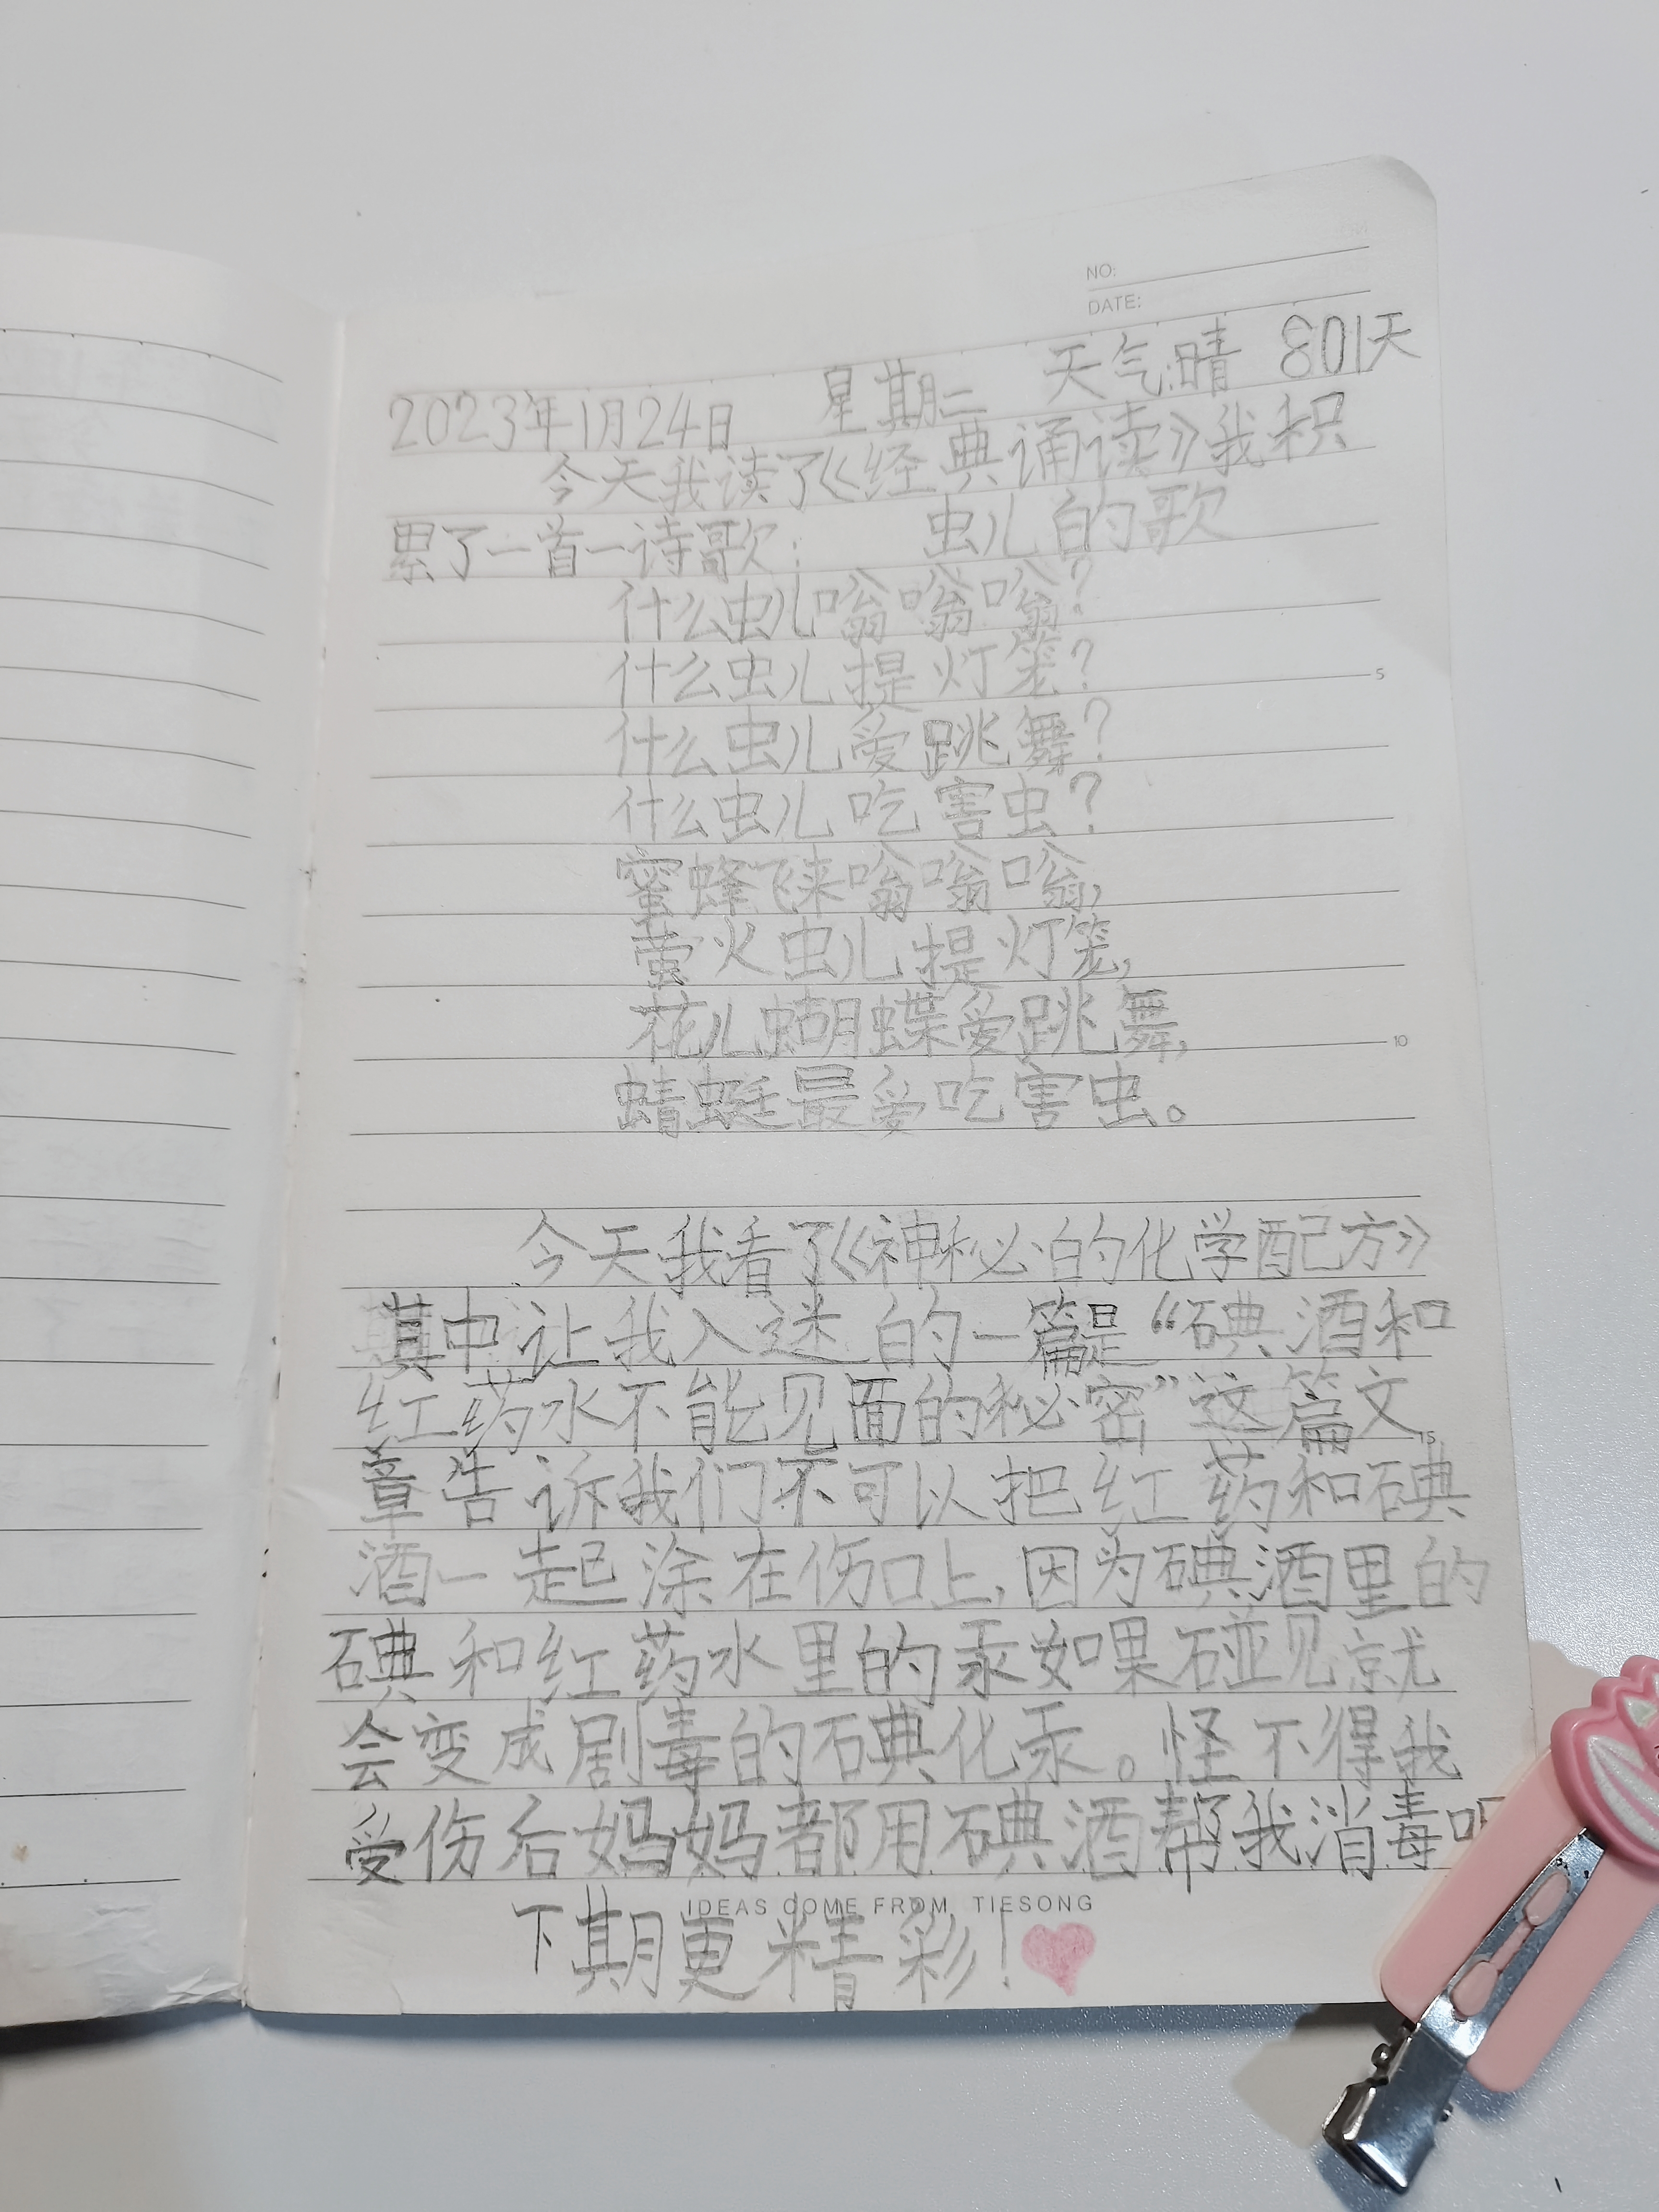 NO:
DATE:
2023年1月24日 星期二 天气:晴 801天
今天我读了《经典诵读》我积
累了一首诗歌: 虫儿的歌
什么虫儿嗡嗡嗡?
什么虫儿提灯笼?
什么虫儿爱跳舞?
什么虫儿吃害虫?
蜜蜂飞来嗡嗡嗡,
萤火虫儿提灯笼,
花儿蝴蝶爱跳舞,
蜻蜓最爱吃害虫。
今天我看了《神秘的化学配方》
其中让我入迷的一篇是“碘酒和
红药水不能见面的秘密”这篇文
章告诉我们不可以把红药和碘
酒一起涂在伤口上,因为碘酒里的
碘和红药水里的汞如果碰见就
会变成剧毒的碘化汞。怪不得我
受伤后妈妈都用碘酒帮我消毒呢
IDEAS COME FROM TIESONG
下期更精彩!
5
10
15